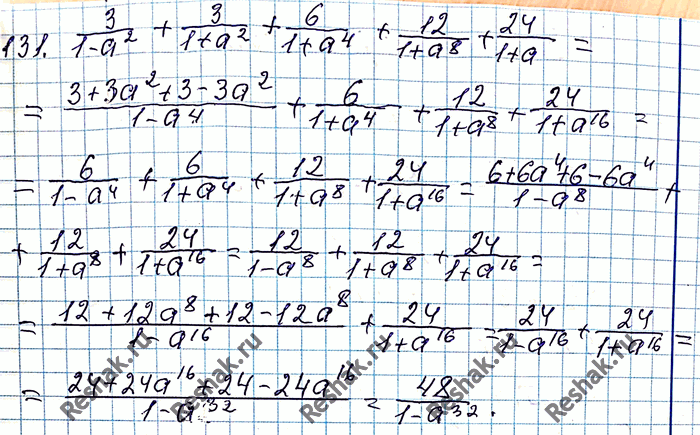 131. \frac{3}{1-a^2} + \frac{3}{1+a^2} + \frac{6}{1+a^4} + \frac{12}{1+a^8} + \frac{24}{1+a} =
= \frac{3+3a^2+3-3a^2}{1-a^4} + \frac{6}{1+a^4} + \frac{12}{1+a^8} + \frac{24}{1+a^{16}} =
= \frac{6}{1-a^4} + \frac{6}{1+a^4} + \frac{12}{1+a^8} + \frac{24}{1+a^{16}} = \frac{6+6a^4+6-6a^4}{1-a^8} +
+ \frac{12}{1+a^8} + \frac{24}{1+a^{16}} = \frac{12}{1-a^8} + \frac{12}{1+a^8} + \frac{24}{1+a^{16}} =
= \frac{12+12a^8+12-12a^8}{1-a^{16}} + \frac{24}{1+a^{16}} = \frac{24}{1-a^{16}} + \frac{24}{1+a^{16}} =
= \frac{24+24a^{16}+24-24a^{16}}{1-a^{32}} = \frac{48}{1-a^{32}}.
Reshak.ru
Reshak.ru
Reshak.ru
Reshak.ru